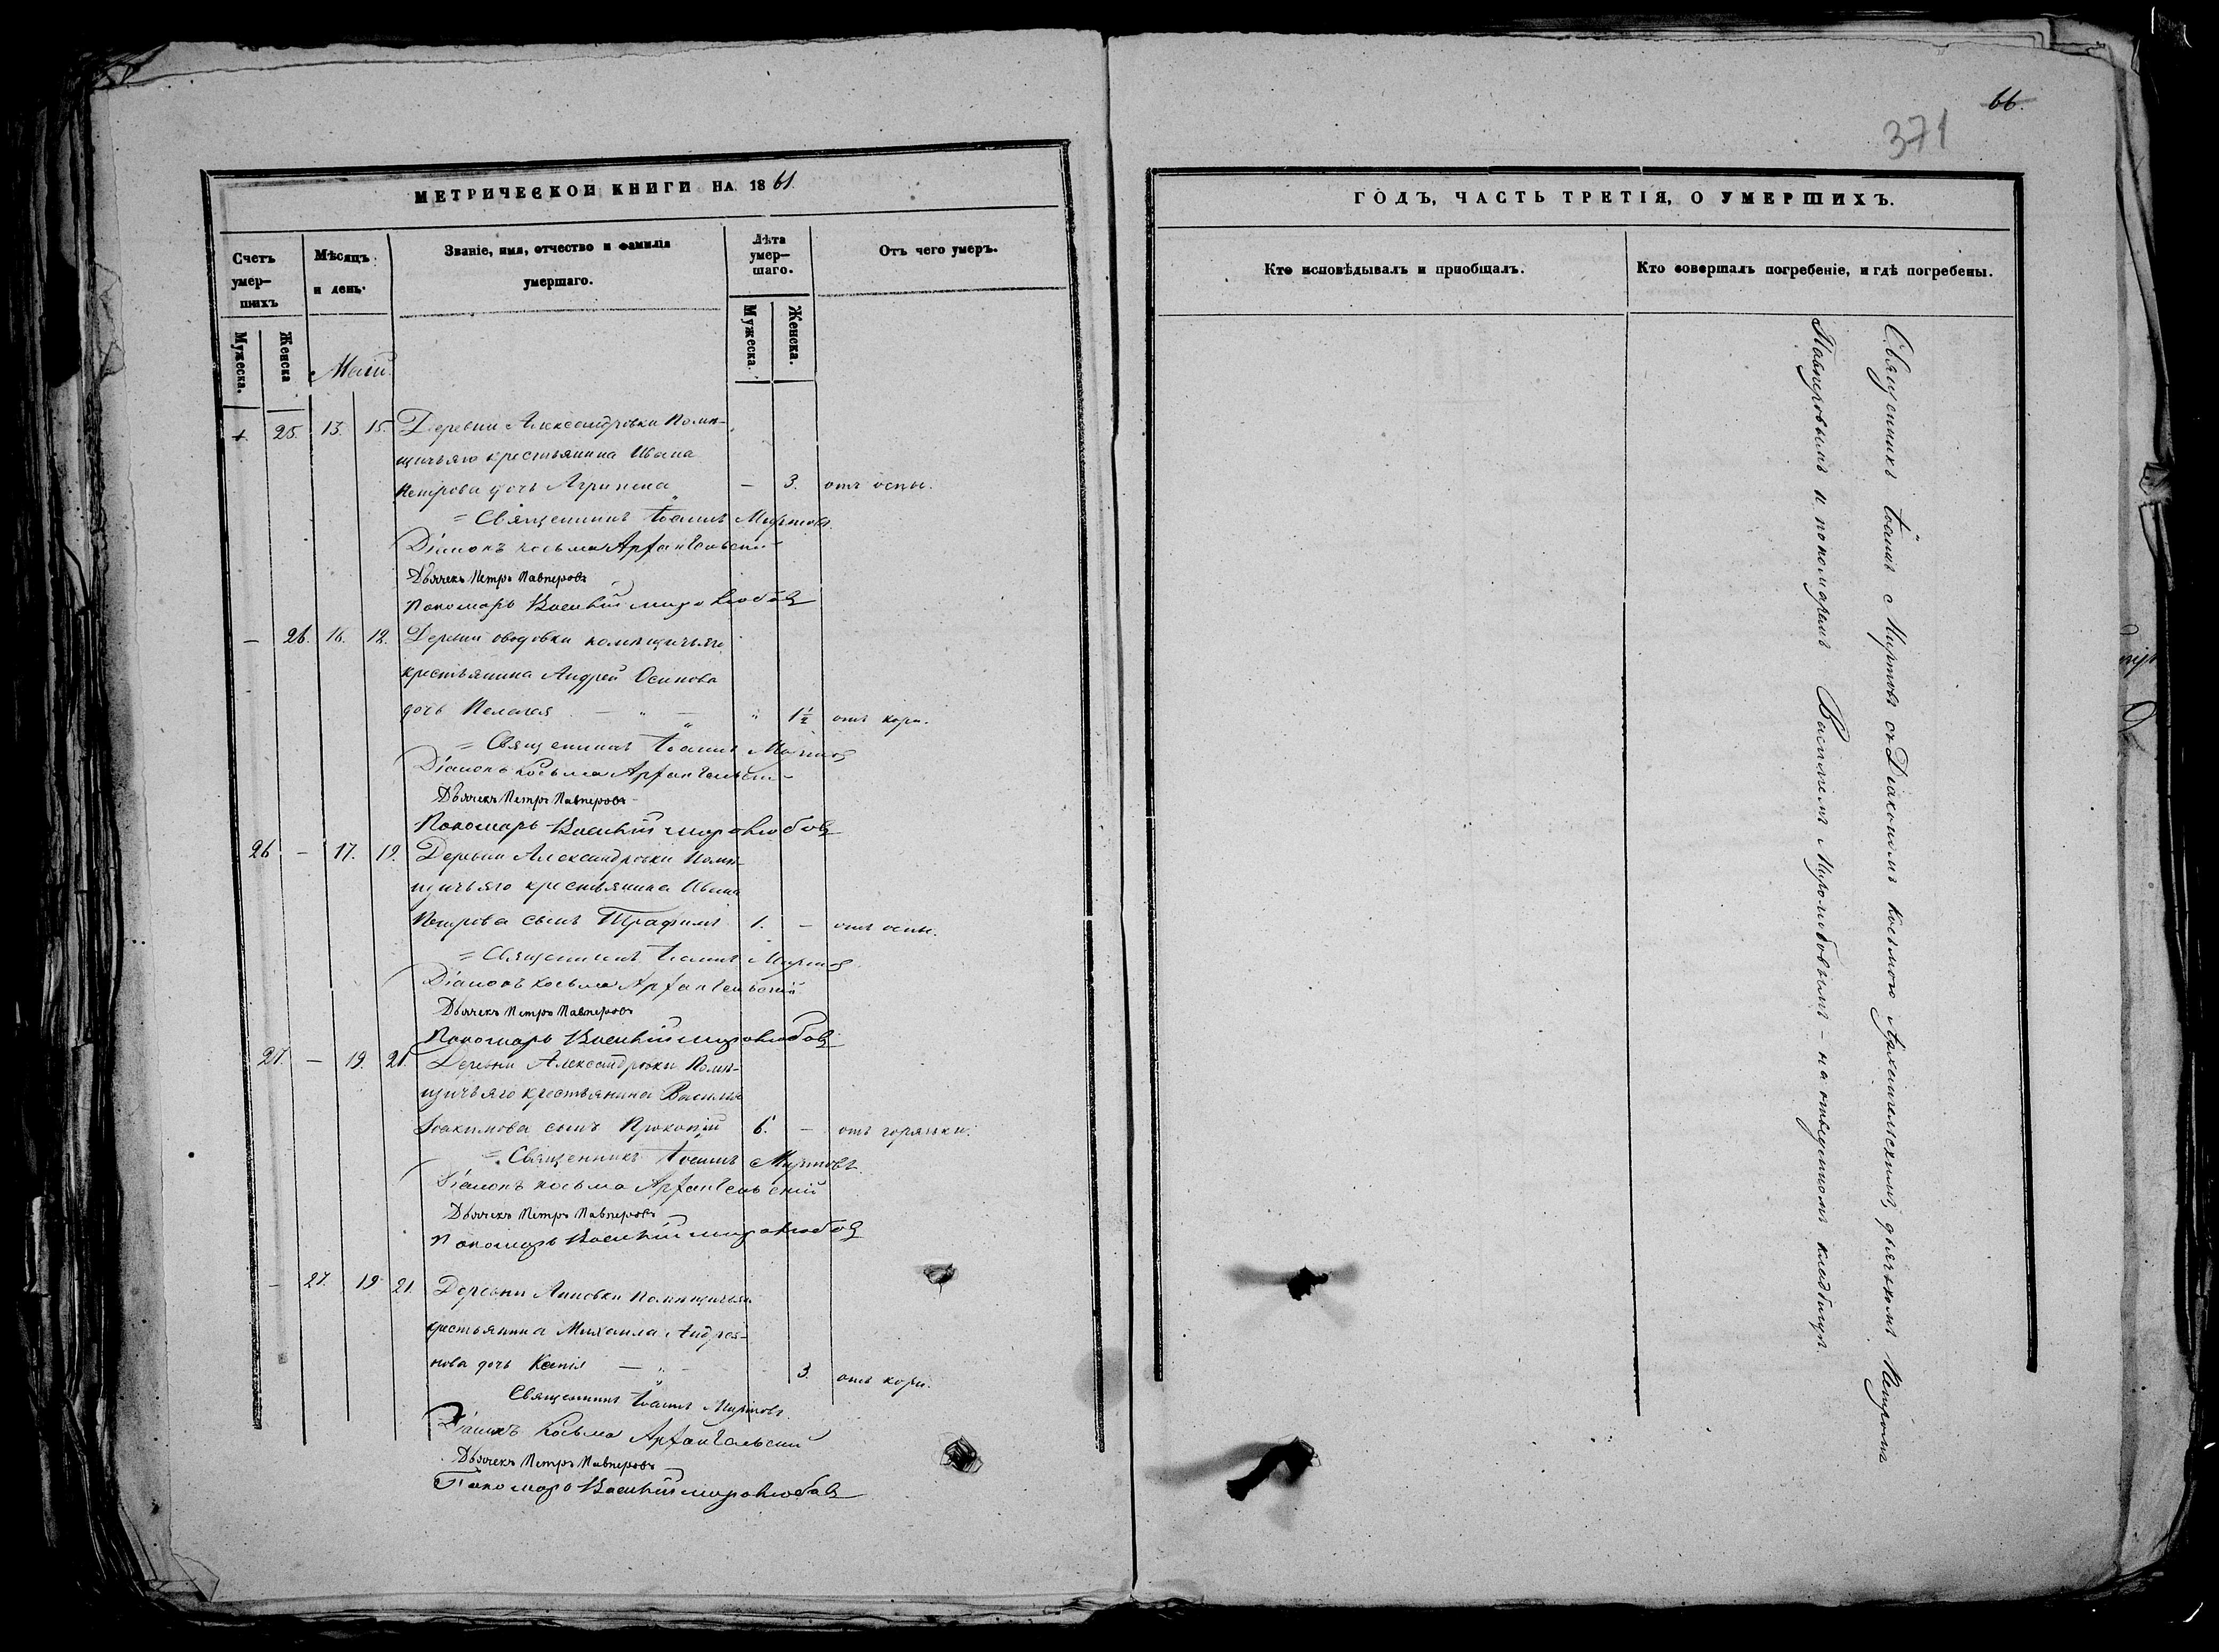 МЕТРИЧЕСКОЙ КНИГИ НА 1861.
Счетъ умер-шихъ
Мѣсяцъ и день.
Званіе, имя, отчество и фамилія умершаго.
Лѣта умер-шаго.
Отъ чего умеръ.
Мужеска.
Женска
Мужеска.
Женска.
Маій.
25. 13. 15. Деревни Александровки Помѣ-
щичьяго крестьянина Ивана
Петрова дочь Агрипена — 3. отъ оспы.
= Священникъ Іоаннъ Миртовъ.
Діаконъ Косьма Архангельскій
Дьячекъ Петръ Павперовъ
Пономарь Василій миролюбовъ
— 26. 16. 18. Деревни помѣщичьяго
крестьянина Андрей Осипова
дочь Пелагея — „ — „ 1½ отъ кори.
= Священникъ Іоаннъ Миртовъ
Діаконъ Косьма Архангельскій
Дьячекъ Петръ Павперовъ
Пономарь Василій миролюбовъ
26 — 17. 19. Деревни Александровки Помѣ-
щичьяго крестьянина Ивана
Петрова сынъ Трафимъ 1. — отъ оспы.
= Священникъ Іоаннъ Миртовъ
Діаконъ Косьма Архангельскій
Дьячекъ Петръ Павперовъ
Пономарь Василій миролюбовъ
27. — 19. 21. Деревни Александровки Помѣ-
щичьяго крестьянина Василія
Іоакимова сынъ Прокопій 6. — отъ горячки.
= Священникъ Іоаннъ Миртовъ.
Діаконъ Косьма Архангельскій
Дьячекъ Петръ Павперовъ
Пономарь Василій миролюбовъ
— 27. 19 21. Деревни Анновки Помѣщичьяго
крестьянина Михаила Андрея-
нова дочь Ксенія — „ — 3. отъ кори.
Священникъ Іоаннъ Миртовъ.
Діаконъ Косьма Архангельскій
Дьячекъ Петръ Павперовъ
Пономарь Василій миролюбовъ
66.
371
ГОДЪ, ЧАСТЬ ТРЕТІЯ, О УМЕРШИХЪ.
Кто исповѣдывалъ и пріобщалъ.
Кто совершалъ погребеніе, и гдѣ погребены.
Священникъ Іоаннъ Миртовъ съ Діакономъ Косьмою Архангельскимъ, дьячкомъ Петромъ
Павперовымъ и пономаремъ Василіемъ Миролюбовымъ – на отведенномъ кладбищѣ.